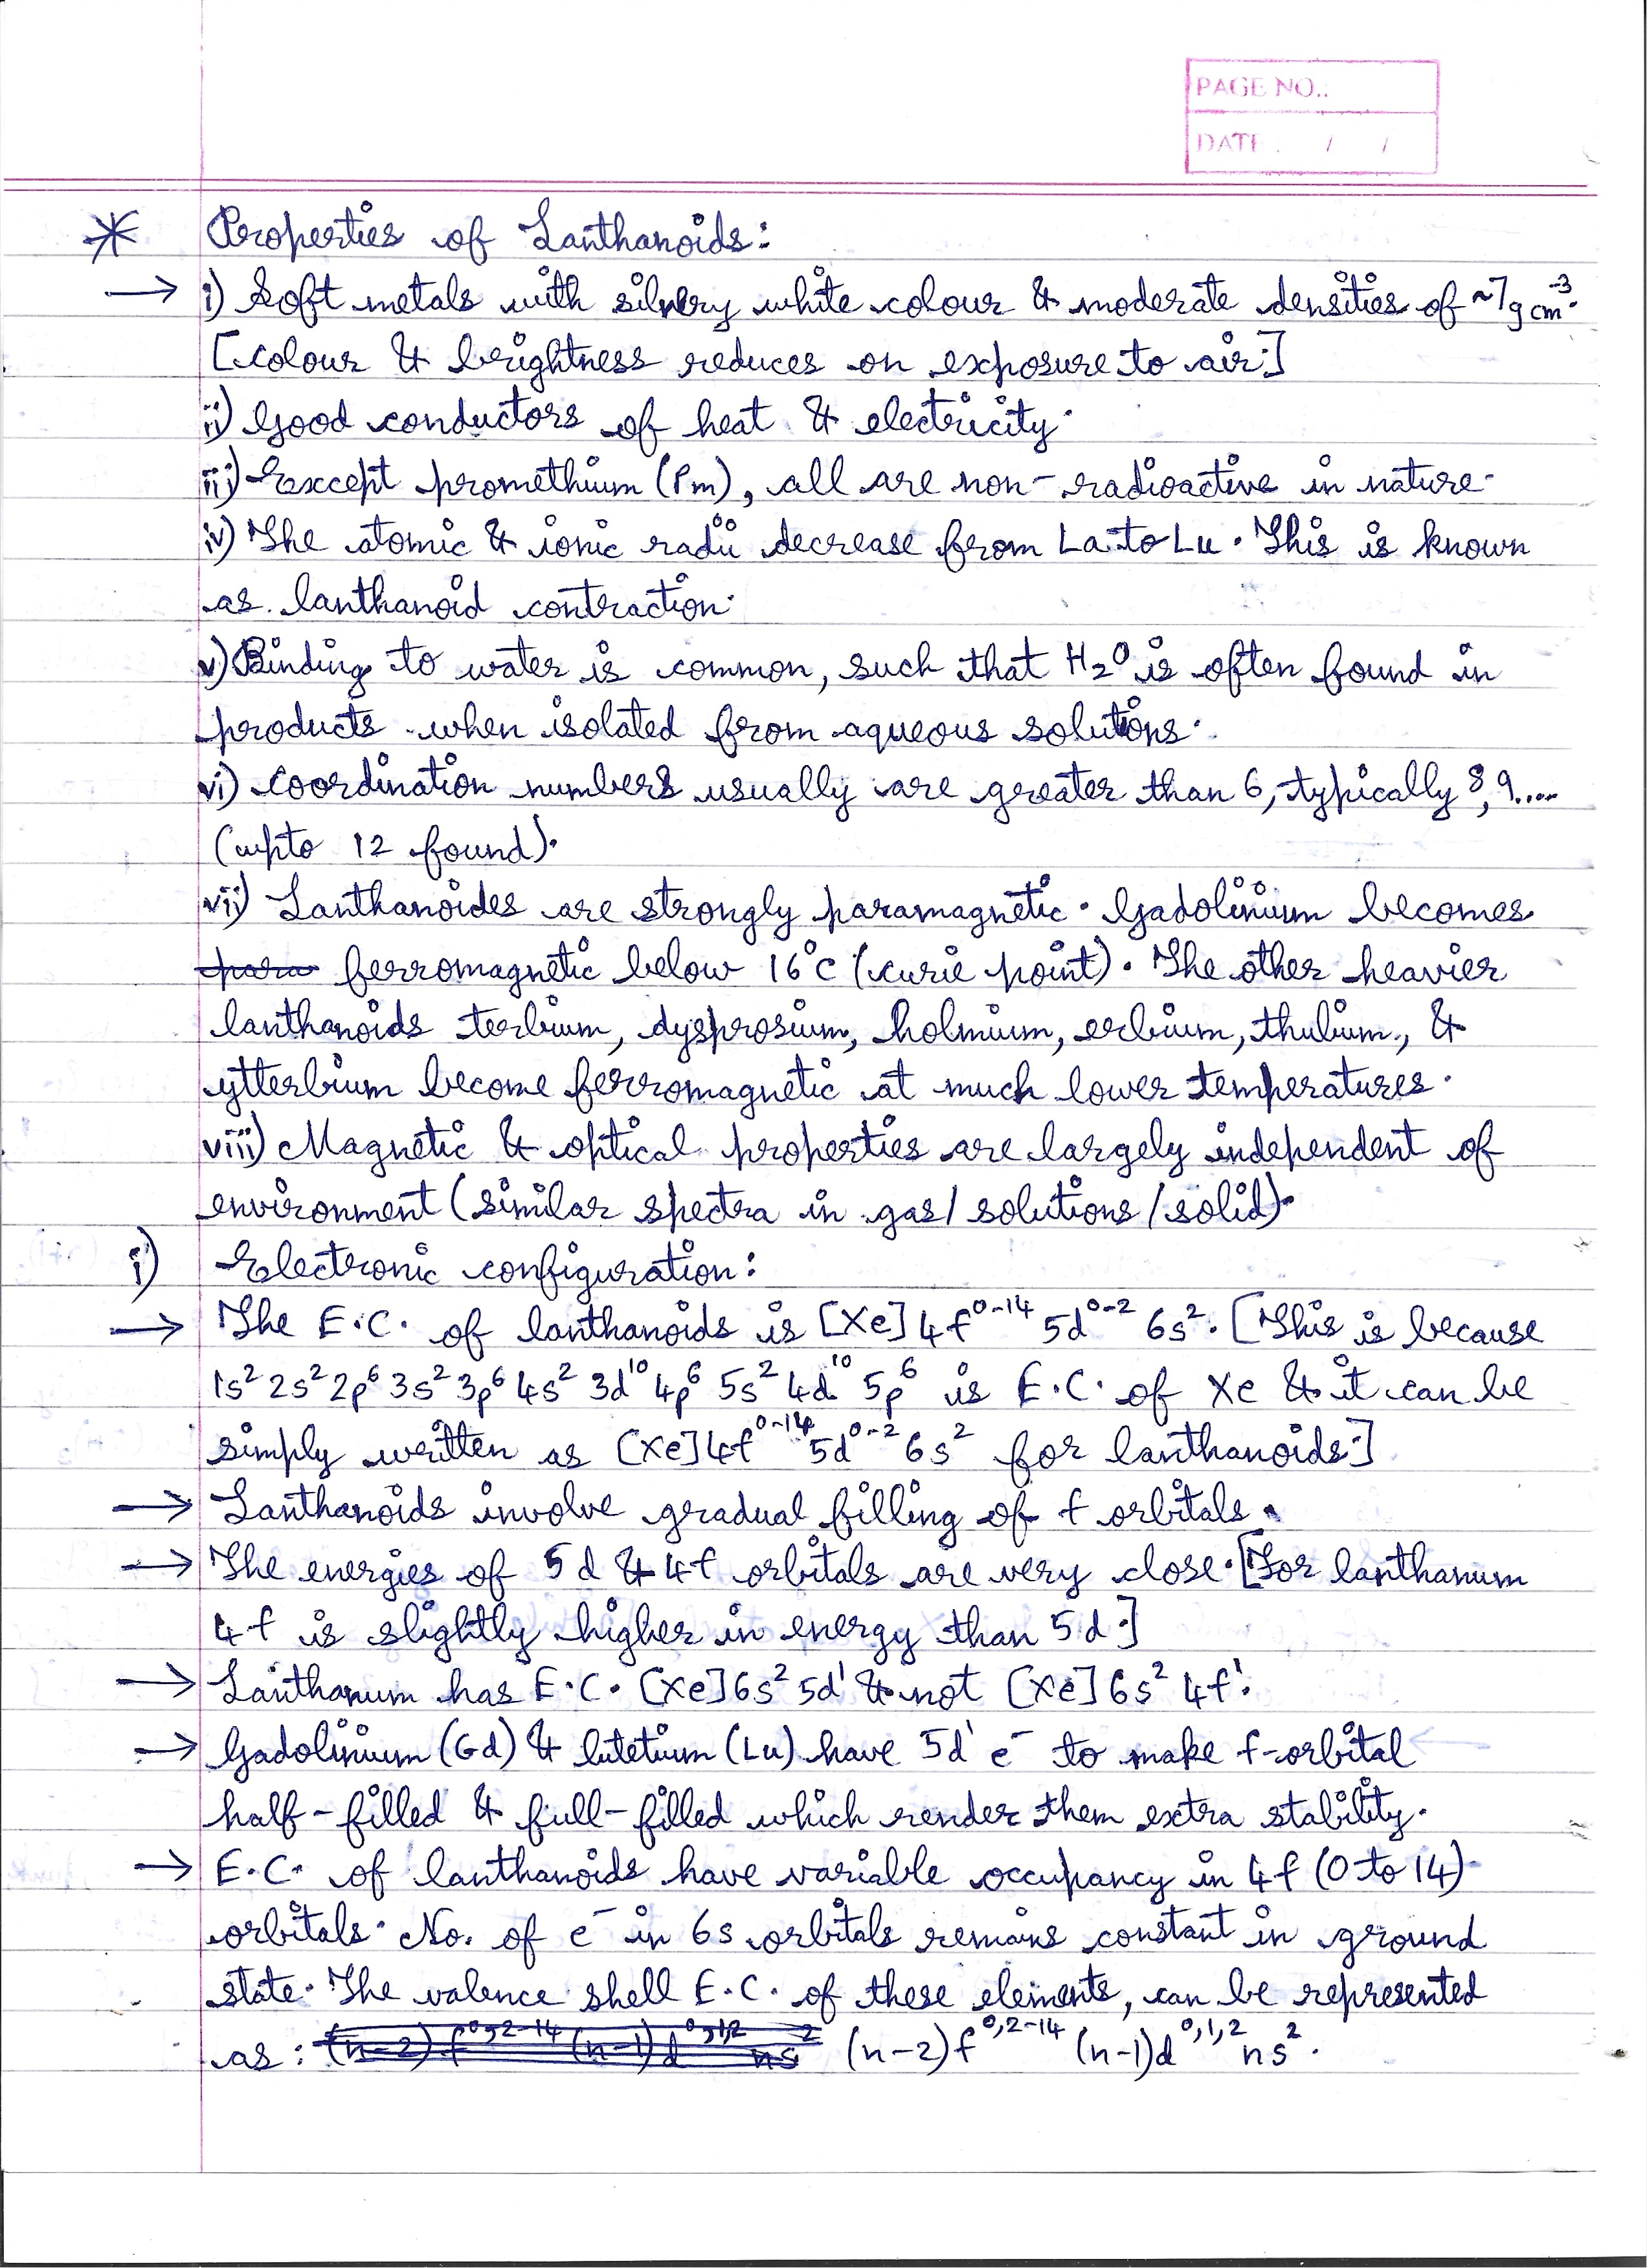 PAGE NO.:
DATE : / /
* Properties of Lanthanoids:
→ i) Soft metals with silvery white colour & moderate densities of ~7 g cm⁻³.
[colour & brightness reduces on exposure to air.]
ii) Good conductors of heat & electricity.
iii) Except promethium (Pm), all are non-radioactive in nature.
iv) The atomic & ionic radii decrease from La to Lu. This is known
as lanthanoid contraction.
v) Binding to water is common, such that H₂O is often found in
products when isolated from aqueous solutions.
vi) Coordination numbers usually are greater than 6, typically 8, 9....
(upto 12 found).
vii) Lanthanoides are strongly paramagnetic. Gadolinium becomes
para ferromagnetic below 16°C (curie point). The other heavier
lanthanoids terbium, dysprosium, holmium, erbium, thulium, &
ytterbium become ferromagnetic at much lower temperatures.
viii) Magnetic & optical properties are largely independent of
environment (similar spectra in gas/solutions/solid).
i) Electronic configuration:
→ The E.C. of lanthanoids is [Xe] 4f⁰⁻¹⁴ 5d⁰⁻² 6s². [This is because
1s² 2s² 2p⁶ 3s² 3p⁶ 4s² 3d¹⁰ 4p⁶ 5s² 4d¹⁰ 5p⁶ is E.C. of Xe & it can be
simply written as [Xe] 4f⁰⁻¹⁴ 5d⁰⁻² 6s² for lanthanoids.]
→ Lanthanoids involve gradual filling of f orbitals.
→ The energies of 5d & 4f orbitals are very close. [For lanthanum
4f is slightly higher in energy than 5d.]
→ Lanthanum has E.C. [Xe] 6s² 5d¹ & not [Xe] 6s² 4f¹.
→ Gadolinium (Gd) & lutetium (Lu) have 5d¹ e⁻ to make f-orbital
half-filled & full-filled which render them extra stability.
→ E.C. of lanthanoids have variable occupancy in 4f (0 to 14)
orbitals. No. of e⁻ in 6s orbitals remains constant in ground
state. The valence shell E.C. of these elements, can be represented
as : (n-2) f⁰,²⁻¹⁴ (n-1) d⁰,¹,² ns² (n-2) f⁰,²⁻¹⁴ (n-1) d⁰,¹,² ns².